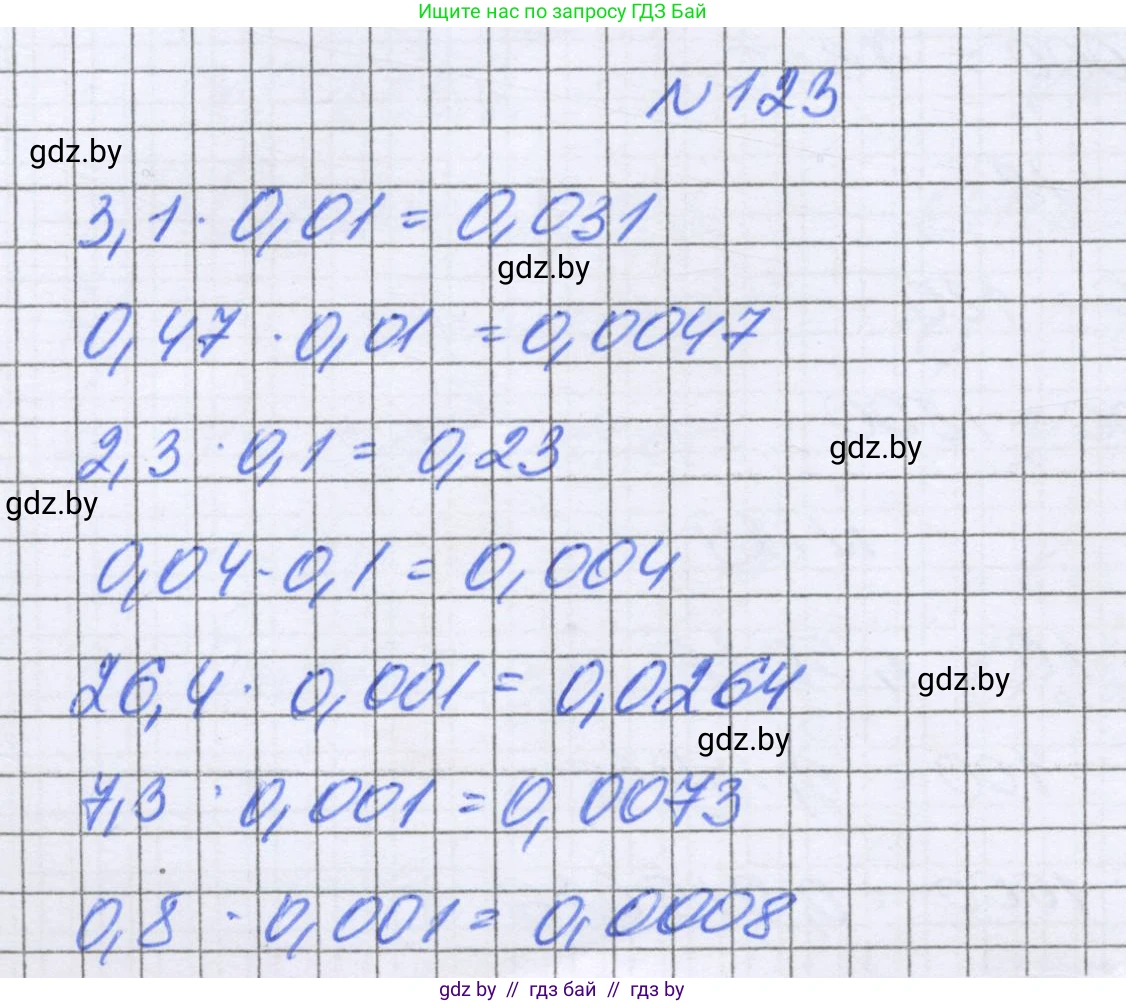 Ищите нас по запросу ГДЗ Бай
N 123
gdz.by
3,1 · 0,01 = 0,031
gdz.by
0,47 · 0,01 = 0,0047
2,3 · 0,1 = 0,23
gdz.by
gdz.by
0,04 · 0,1 = 0,004
26,4 · 0,001 = 0,0264
gdz.by
gdz.by
7,3 · 0,001 = 0,0073
0,8 · 0,001 = 0,0008
gdz by // гдз бай // гдз by